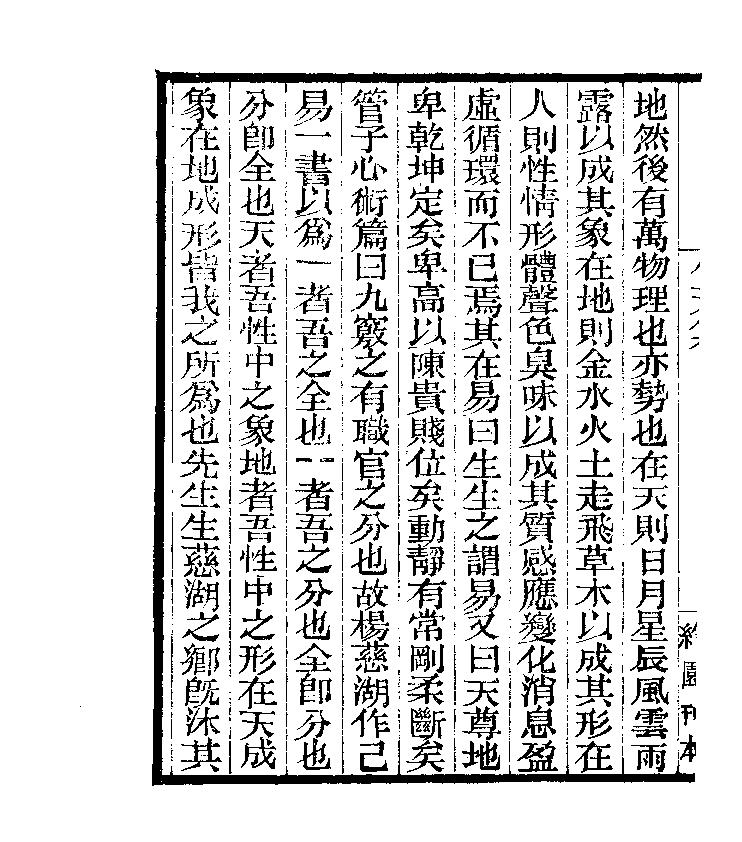 地然後有萬物理也亦勢也在天則日月星辰風雲雨
露以成其象在地則金水火土走飛草木以成其形在
人則性情形體聲色臭味以成其質感應變化消息盈
虛循環而不已焉其在易曰生生之謂易又曰天尊地
卑乾坤定矣卑高以陳貴賤位矣動靜有常剛柔斷矣
管子心術篇曰九竅之有職官之分也故楊慈湖作己
易一書以爲一者吾之全也一者吾之分也全卽分也
分卽全也天者吾性中之象地者吾性中之形在天成
象在地成形皆我之所爲也先生生慈湖之鄉旣沐其
園刊本